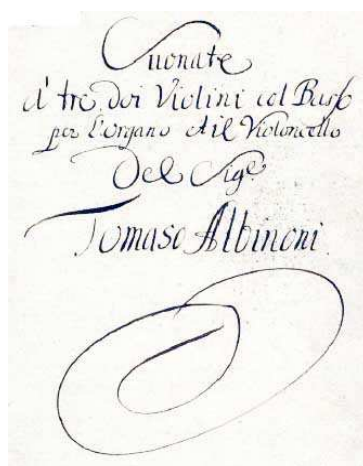 Suonate
à tre, doi Violini col Basso
per L'organo et il Violoncello
Del Sig.e
Tomaso Albinoni